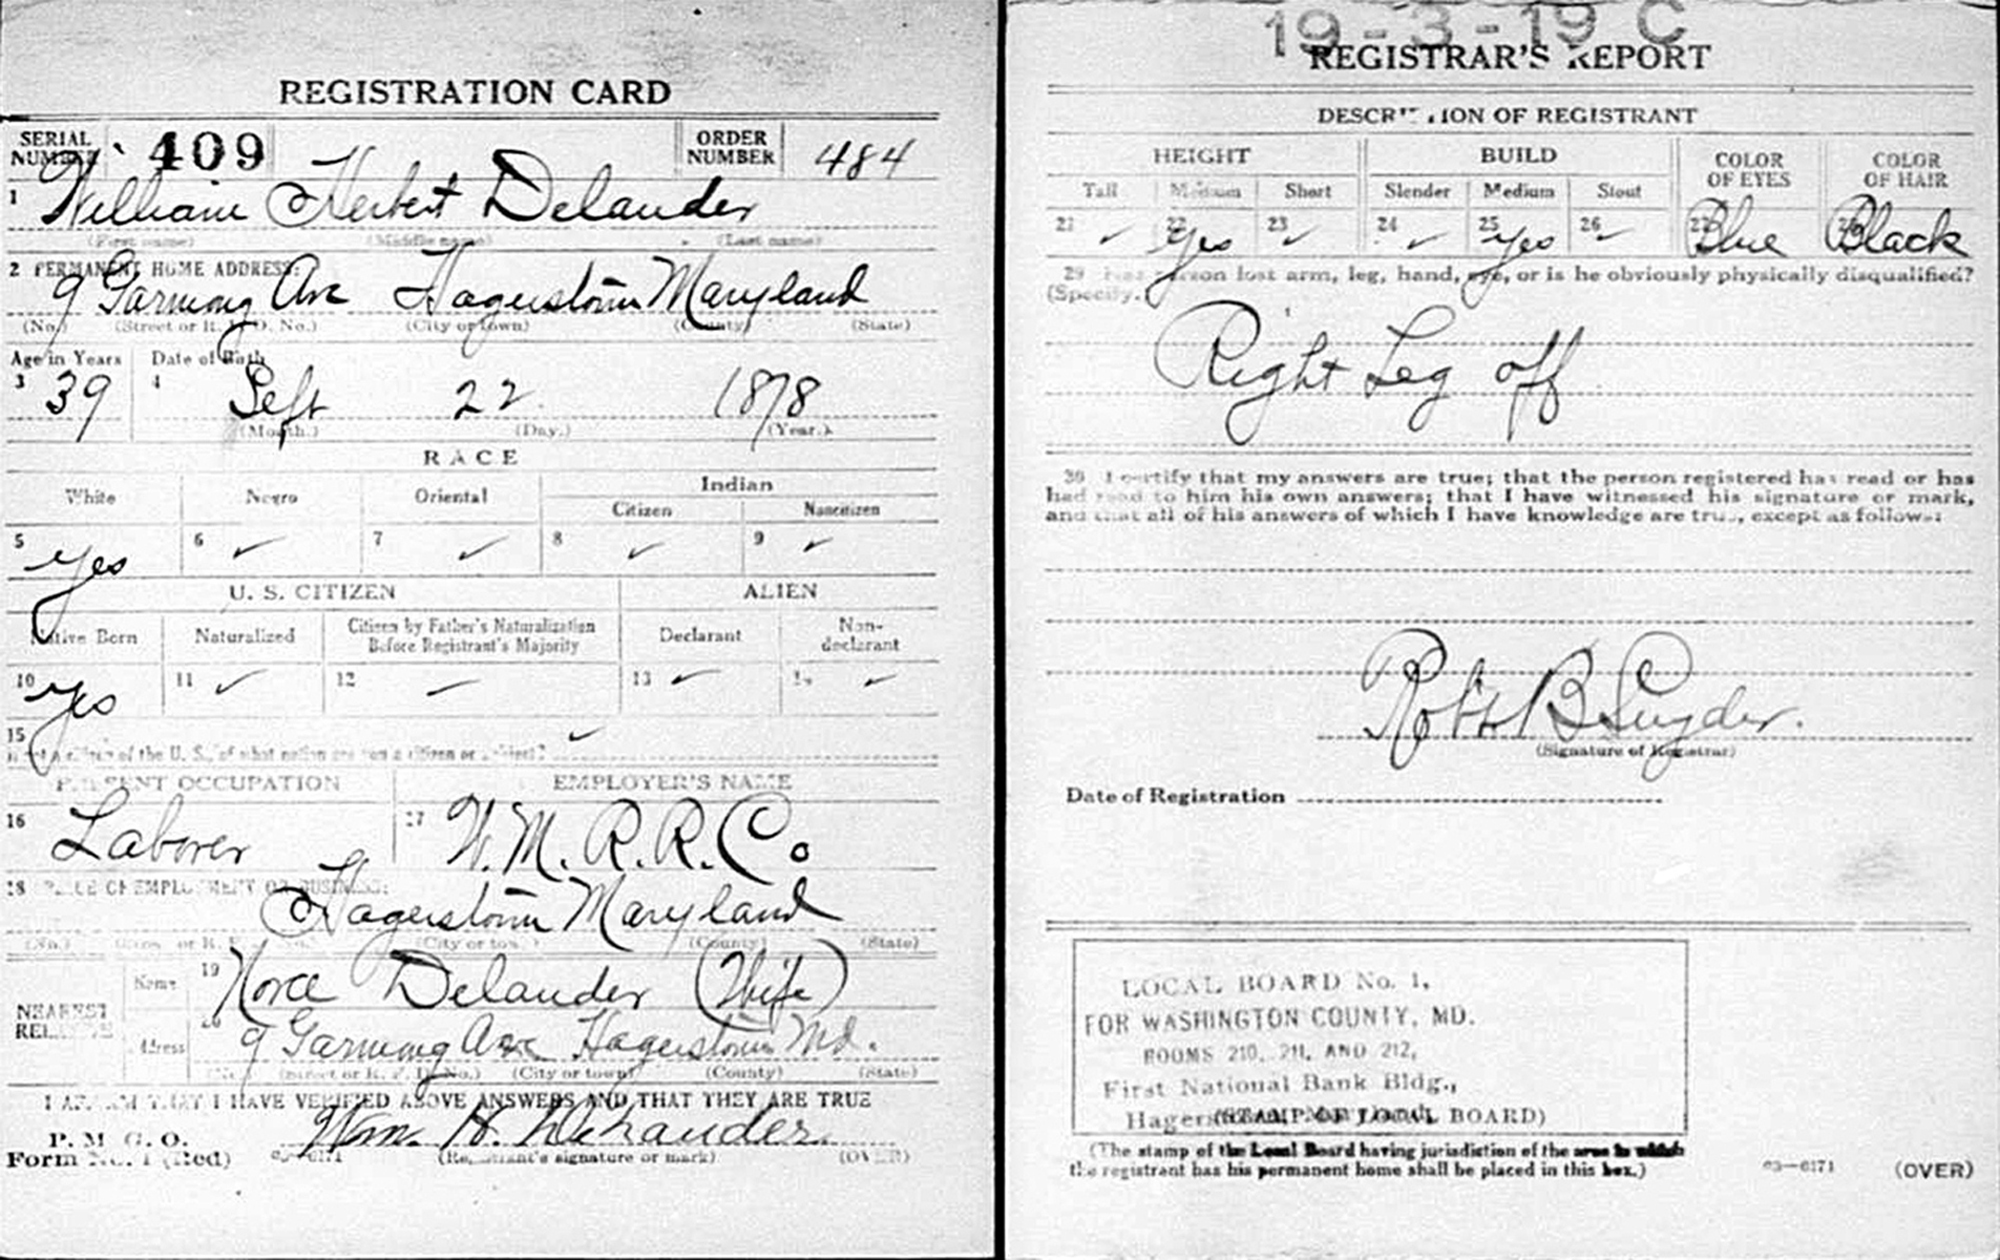 REGISTRATION CARD
SERIAL NUMBER 409 ORDER NUMBER 484
1 William Herbert Delauder
(First name) (Middle name) (Last name)
2 PERMANENT HOME ADDRESS:
9 Ave Hagerstown Maryland
(No.) (Street or R. F. D. No.) (City or town) (County) (State)
Age in Years Date of Birth
3 39 4 Sept 22 1878
(Month.) (Day.) (Year.)
RACE
White Negro Oriental Indian
Citizen Noncitizen
5 Yes 6 ✓ 7 ✓ 8 ✓ 9 ✓
U. S. CITIZEN ALIEN
Native Born Naturalized Citizen by Father's Naturalization Before Registrant's Majority Declarant Non-declarant
10 Yes 11 ✓ 12 ✓ 13 ✓ 14 ✓
15 ✓
If not a citizen of the U. S., of what nation are you a citizen or subject?
PRESENT OCCUPATION EMPLOYER'S NAME
16 Laborer 17 W. M. R. R. Co
18 PLACE OF EMPLOYMENT OR BUSINESS:
Hagerstown Maryland
(No.) (Street or R. F. D. No.) (City or town) (County) (State)
NEAREST RELATIVE
Name 19 Delauder (Wife)
Address 20 9 Ave Hagerstown Md.
(No.) (Street or R. F. D. No.) (City or town) (County) (State)
I AFFIRM THAT I HAVE VERIFIED ABOVE ANSWERS AND THAT THEY ARE TRUE
P. M. G. O.
Form No. 1 (Red) 03—6171 Wm. H. Delauder.
(Registrant's signature or mark) (OVER)
19-3-19 C
REGISTRAR'S REPORT
DESCRIPTION OF REGISTRANT
HEIGHT BUILD COLOR OF EYES COLOR OF HAIR
Tall Medium Short Slender Medium Stout
21 ✓ 22 Yes 23 ✓ 24 ✓ 25 Yes 26 ✓ 27 Blue 28 Black
29 Has person lost arm, leg, hand, eye, or is he obviously physically disqualified?
(Specify.)
Right Leg off
30 I certify that my answers are true; that the person registered has read or has
had read to him his own answers; that I have witnessed his signature or mark,
and that all of his answers of which I have knowledge are true, except as follows:
Robt B Snyder.
(Signature of Registrar)
Date of Registration
LOCAL BOARD No. 1,
FOR WASHINGTON COUNTY, MD.
ROOMS 210, 211, AND 212,
First National Bank Bldg.,
(STAMP OF LOCAL BOARD)
(The stamp of the Local Board having jurisdiction of the area in which
the registrant has his permanent home shall be placed in this box.)
03—6171 (OVER)